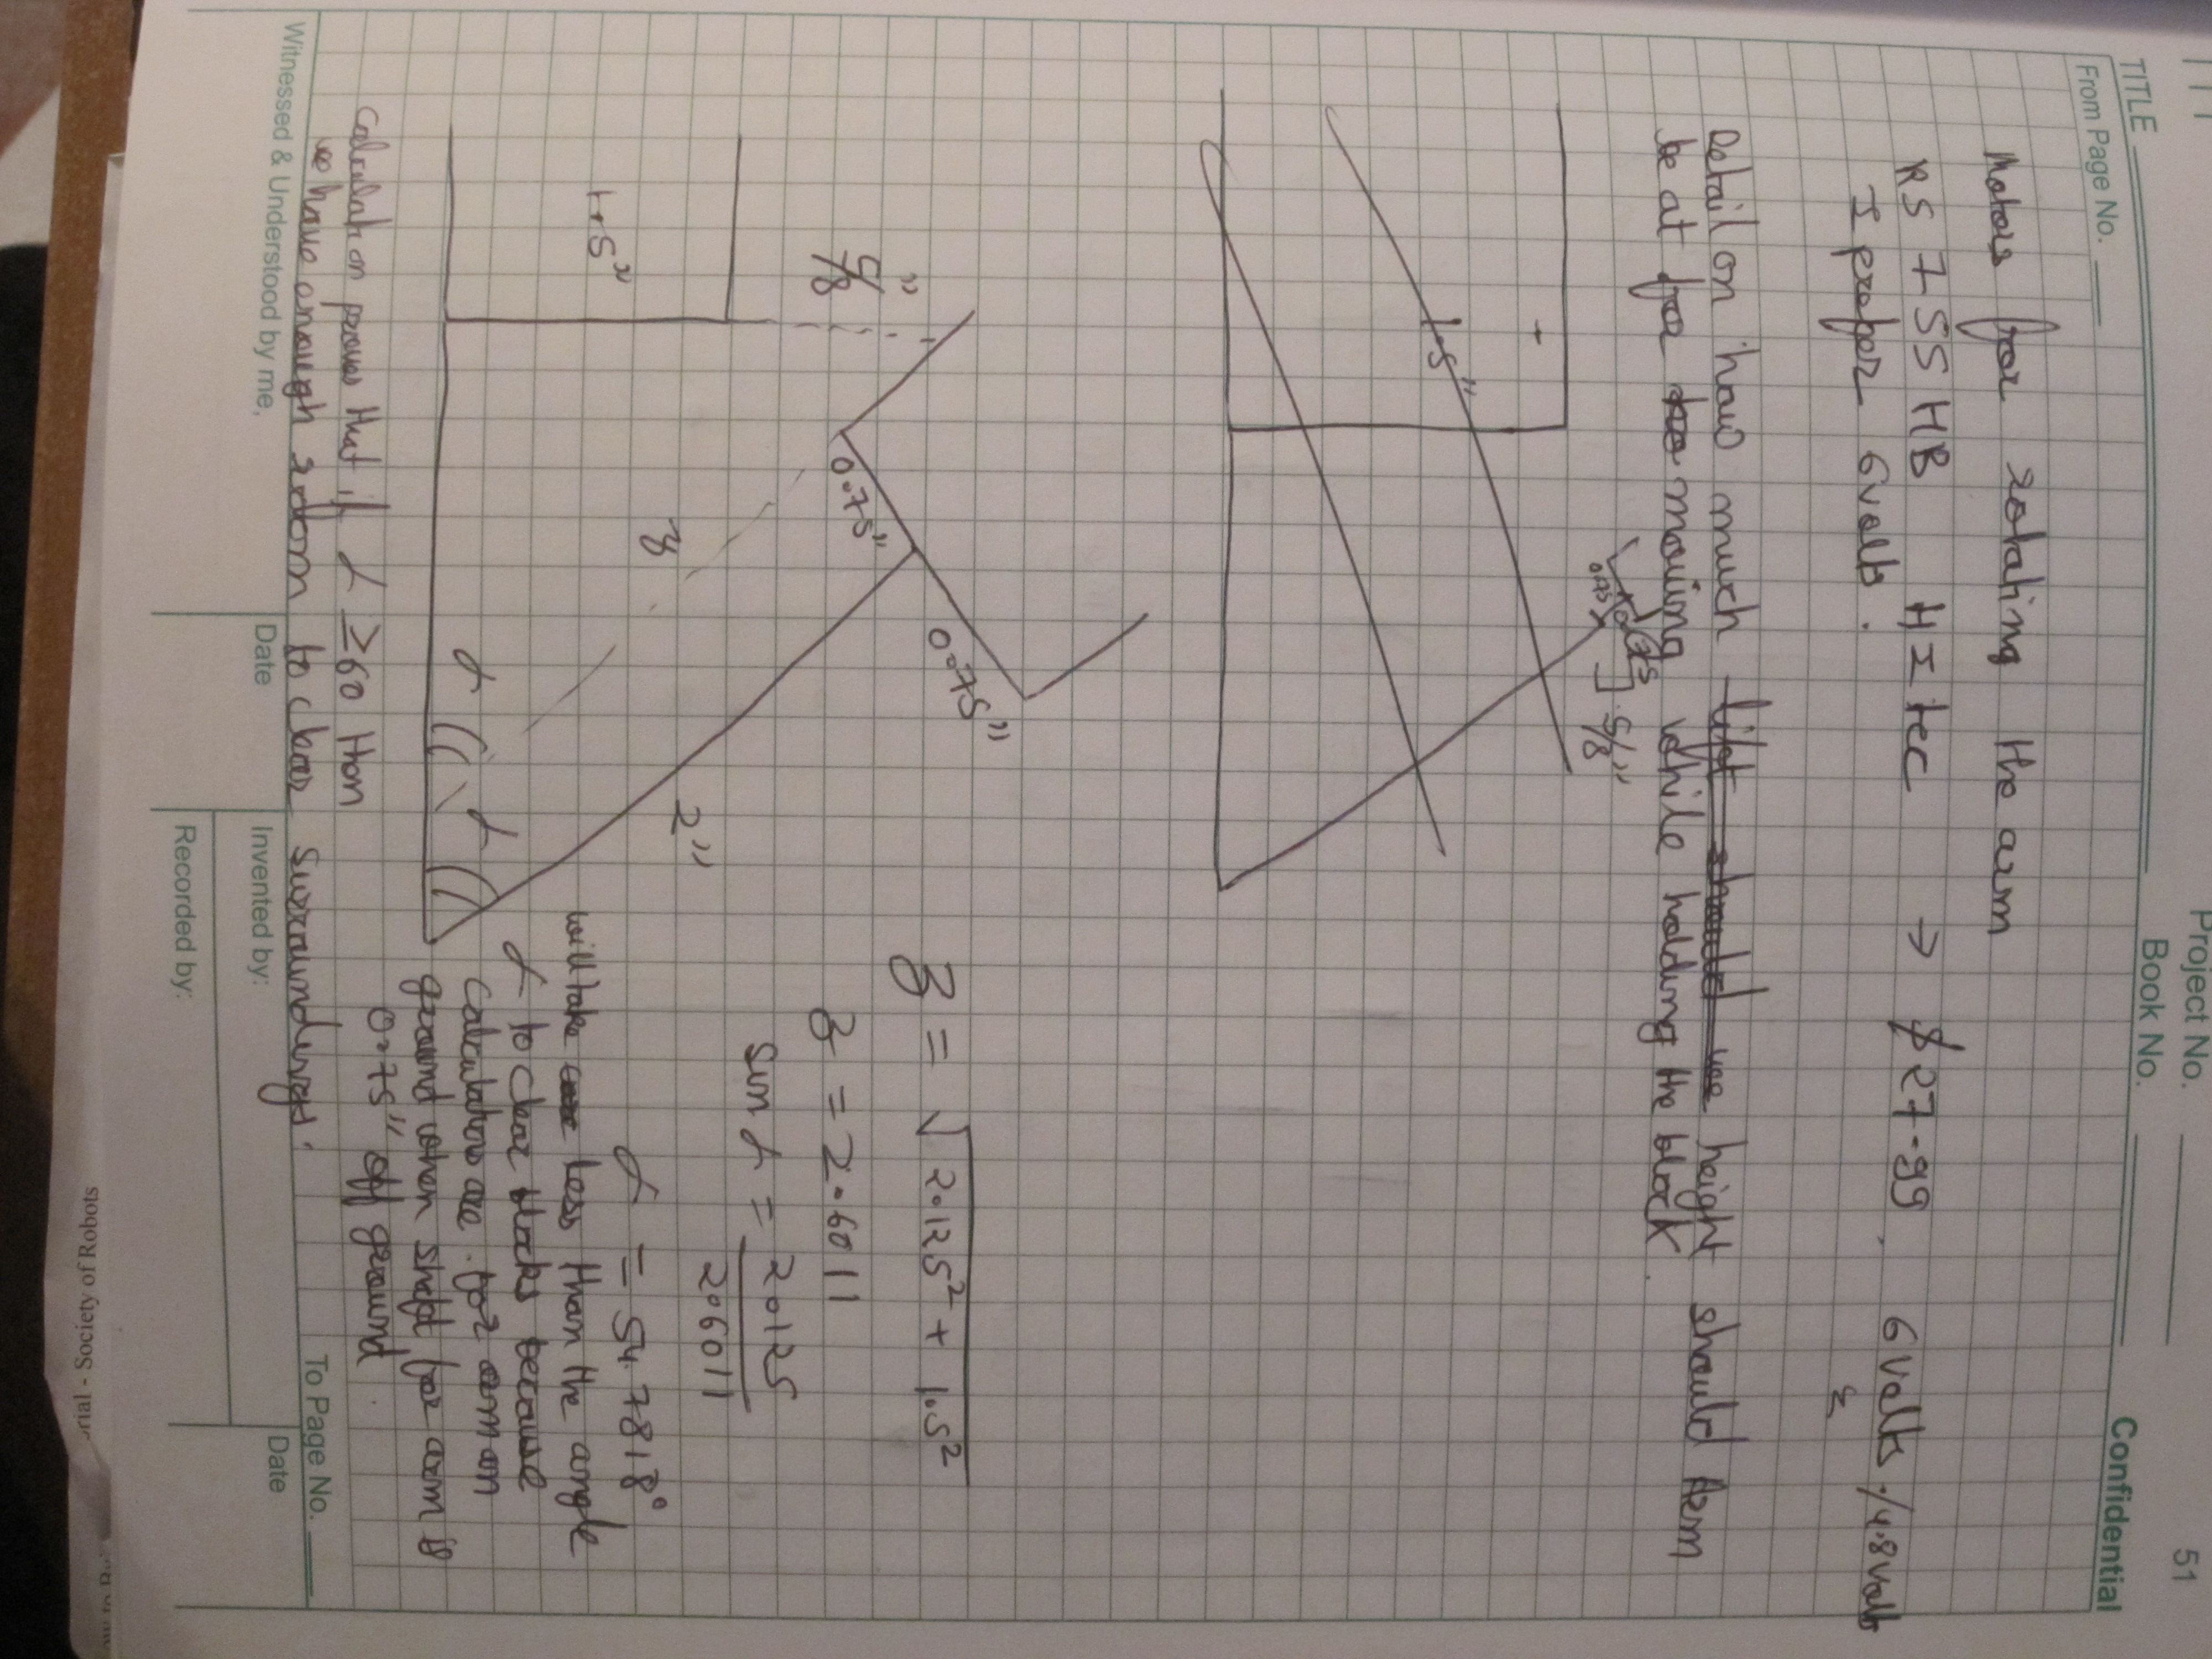 51
Project No.
TITLE
Book No.
Confidential
From Page No.
Motors for rotating the arm
RS 755 HB HITEC → $27.99 6 volts / 4.8 volts
I prefer 6 volts.
Detail on how much height should Arm
be at for moving while holding the block.
0.75
5/8"
1.5"
0.75"
0.75"
5/8"
2"
z
1.5"
z = √2.125² + 1.5²
z = 2.6011
sin α = 2.125
2.6011
α = 54.7818°
will take less than the angle
α to clear blocks because
calculations are for arm on
ground when shaft for arm is
0.75" off ground
α
α
Calculation proves that if α ≥60 then
we have enough room to clear surroundings.
To Page No.
Witnessed & Understood by me,
Date
Invented by:
Date
Recorded by:
orial - Society of Robots